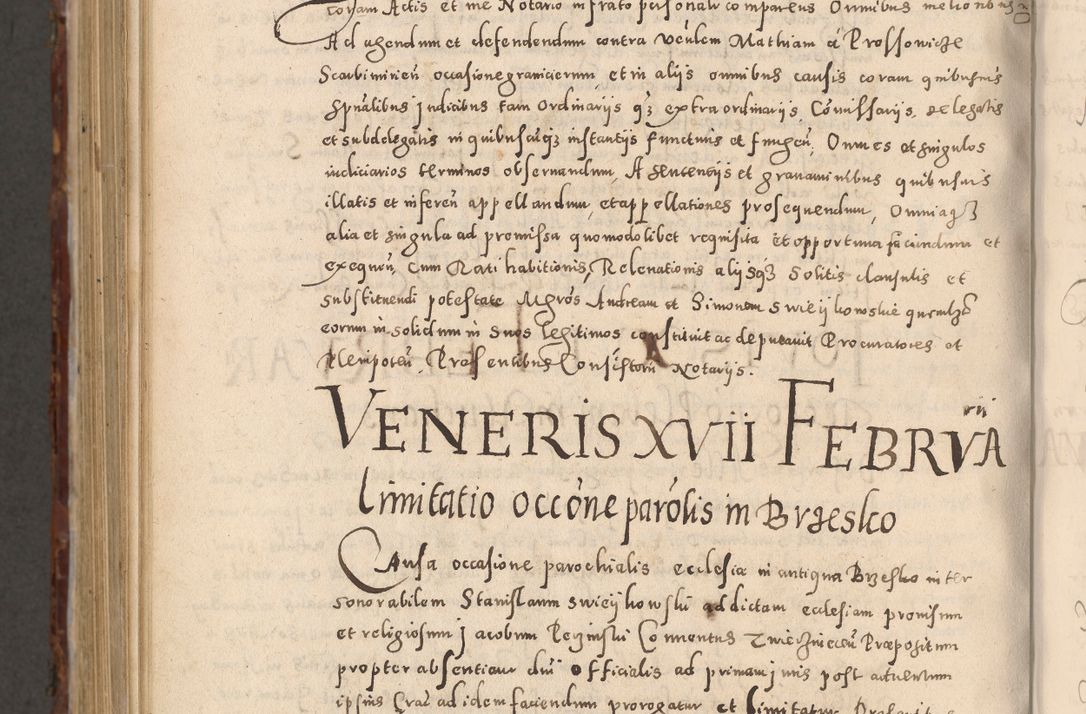 coram Actis et me Notario infrato personalr comparens Omnibus melioribus
Ad agendum et defendendum contra Venlem Mathiam a Prossowicze
Scarbimirien̄ occasione graniciernm et in alijs omnibus causis coram quibusuis
Spnālibus Judicibus tam Ordinarijs qꝫ extraordinarijs, Com̄issarijs, delegatis
et subdelegatis in quibuscūqꝫ instantijs functuris et fungen̄, Omnes et singulos
iudiciarios terminos observandum, A Sentencijs et gravaminibus quibusuis
illatis et inferen̄ appellandum, et appellationes prosequendum, Omniaqꝫ
alia et singula ad promissa quomodolibet requisita et opportuna faciendum et
exequen̄, Cum Rati habitionis, Relevationis alijsqꝫ solitis clausulis et
substituendi potestate Mgrōs Andream et Simonem Swieijkowskie quemlꝫ
eorum in solidum in suos legitimos constituit ac deputauit Procuratores et
Plenipoten̄. Presentibus Consistorij Notarijs.
VENERIS XVII FEBRVA rii
Limitatio occōne parōlis in Brzesko
Causa occasione parochialis ecclesiæ in antiqua Brzesko inter
honorabilem Stanislaum Swieijkowski ad dictam ecclesiam prouisum
et religiosum Jacobum Conuentus Zwierzinecen̄ Præpositum
propter absentiam dn̄i Officialis ad primam juris post aduentum
ipsius Cras ad idem faciendum prorogatur et limitatur